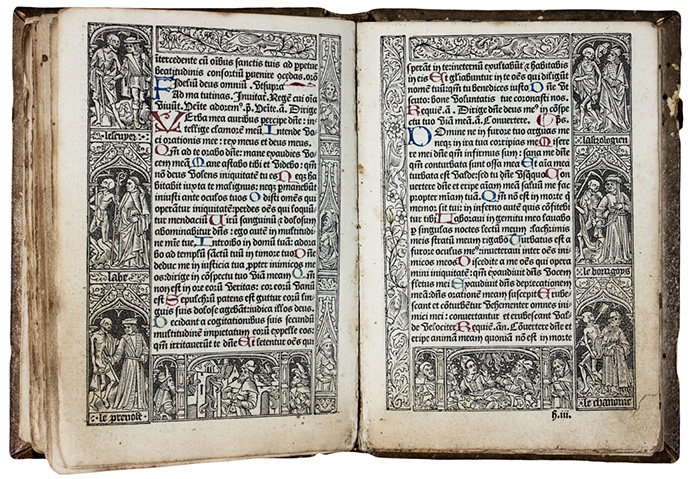 intercedente cū oībus sanctis tuis ad ppetue
beatitudinis consortiū puenire ɔcedas. orō
Fidesiū deus omniū. Ut supra
Ad matutinas. Inuitat. Regē cui oīa
viuūt. Uēite adorem⁹. p̄. Uēite. A. Dirige
Verba mea auribus percipe dn̄e: in
tellige clamorē meū Intende vo
ci orationis mee: rey meus et deus meus.
Qm̄ ad te orabo dn̄e: mane exaudies vo
cem meā Mane astabo tibi et videbo: qm̄
nō deus volens iniquitatē tu es Neq̄ ha
bitabit iuxta te malignus: neq̄ pmanebūt
iniusti ante oculos tuos Odisti om̄s qui
operātur iniquitatē: perdes oēs qui loquū
tur mendaciū Uirū sanguinū ⁊ dolosum
abominabitur dn̄s: ego autē in multitudi
ne mīe tue. Introibo in domū tuā: adora
bo ad templū sāctū tuū in timore tuo Dn̄e
deduc me in iusticia tua ppter inimicos me
os: dirige in ɔspectu tuo viā meam Qm̄
non est in ore eorū veritas: cor eorū vanū
est Sepulchrū patens est guttur eorū lin
guis suis dolose agebāt: iudica illos deus.
Decidant a cogitationibus suis secundū
multitudinē impietatum eorū expelle eos:
qm̄ irritauerūt te dn̄e Et letentur oēs qui
lescuyer
labe
le preuost
sperāt in te: in eternū exultabūt ⁊ habitabis
in eis Et gl̄iabuntur in te oēs qui diligūt
nomē tuū: qm̄ tu benedices iusto Dn̄e vt
scuto: bone voluntatis tue coronasti nos.
Requiē. A. Dirige dn̄e deus me⁹ in ɔspec
tu tuo viā meā. A. Conuertere. Ps.
Domine ne in furore tuo arguas me
neq̄ in ira tua corripias me Mise
rere mei dn̄e qm̄ infirmus sum: sana me dn̄e
qm̄ conturbata sunt ossa mea Et aīa mea
turbata est valde: sed tu dn̄e vsquequo Con
uertere dn̄e et eripe aīam meā saluū me fac
propter mīam tuā. Qm̄ nō est in morte q̄
memor sit tui: in inferno autē quis ɔfitebi
tur tibi Laboraui in gemitu meo lauabo
p singulas noctes lectū meum lachrimis
meis stratū meum rigabo Turbatus est a
furore oculus me⁹: inueteraui inter oēs ini
micos meos Discedite a me oēs qui opera
mini iniquitatē: qm̄ exaudiuit dn̄s vocem
fletus mei Exaudiuit dn̄s deprecationem
meā: dn̄s orationem meam suscepit Erube
scant et ɔturbētur vehementer omnes ini
mici mei: conuertantur et erubescant val
de velociter Requiē. an. Cōuertere dn̄e et
eripe animā meam quoniā nō est in morte
h.iii.
lastrologien
le bourgoys
le chanoine